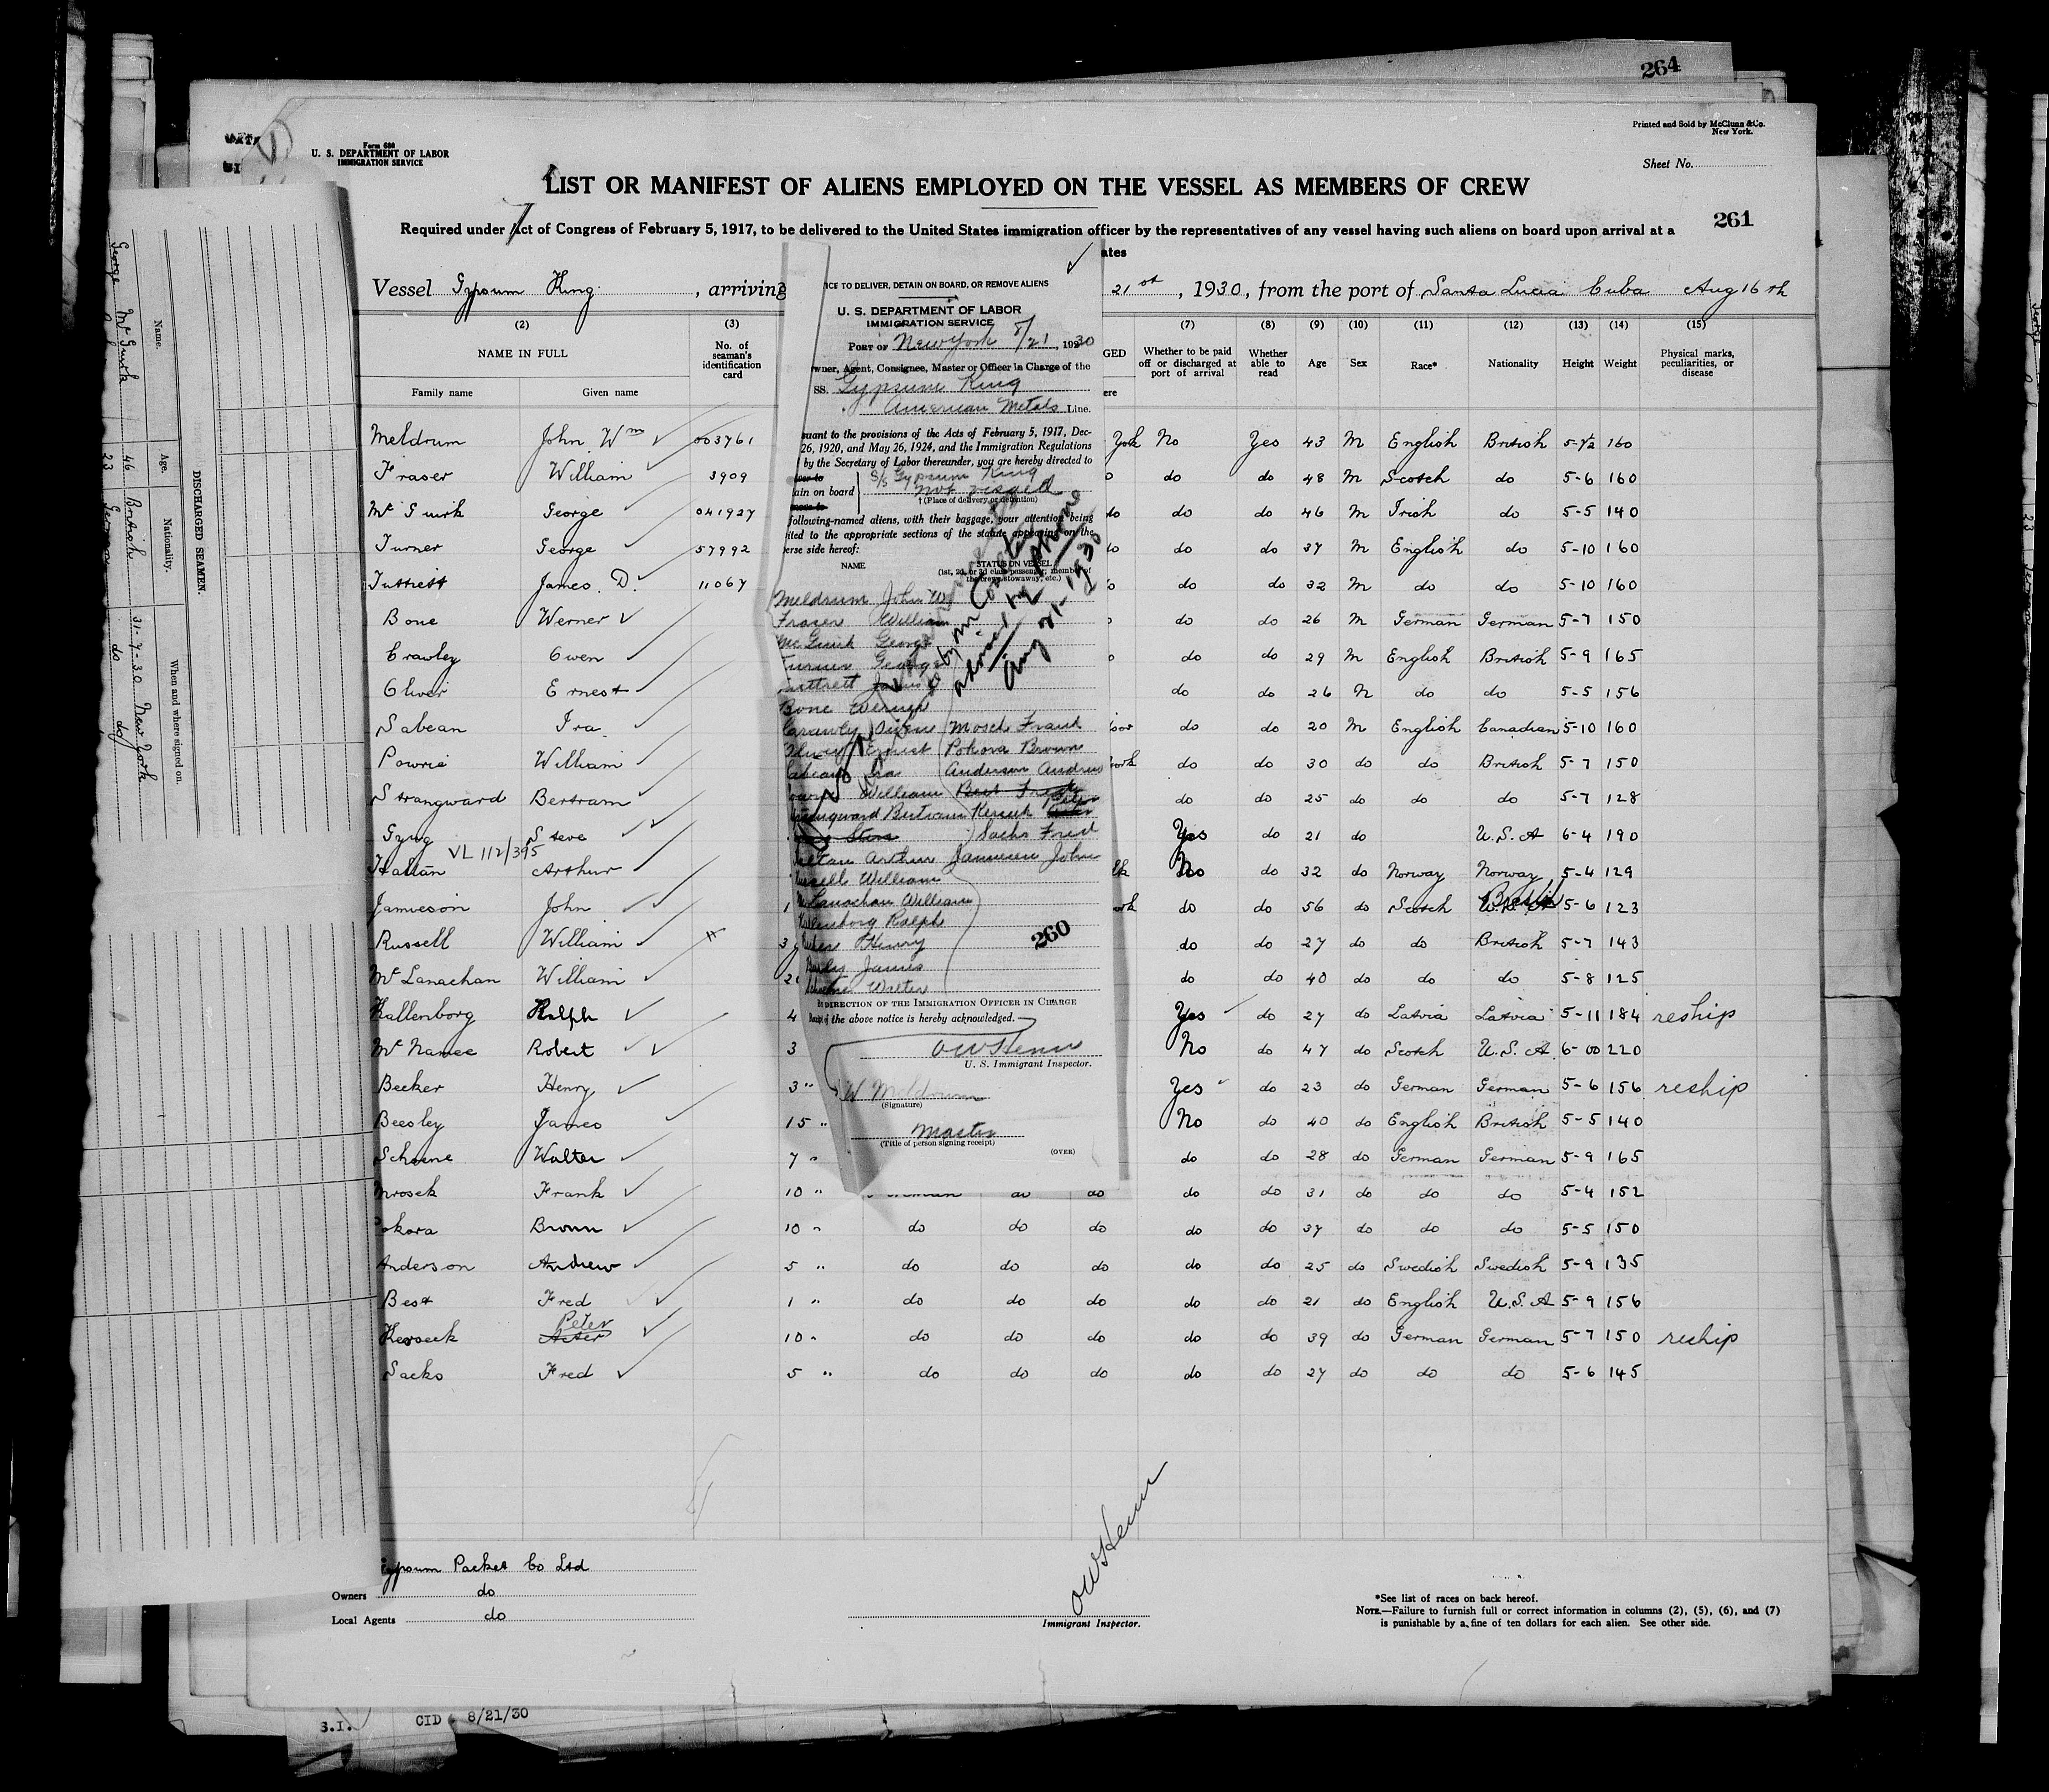 264
Printed and Sold by McClunn & Co.
New York.
Form 680
U. S. DEPARTMENT OF LABOR
IMMIGRATION SERVICE
Sheet No.
LIST OR MANIFEST OF ALIENS EMPLOYED ON THE VESSEL AS MEMBERS OF CREW
261
Required under Act of Congress of February 5, 1917, to be delivered to the United States immigration officer by the representatives of any vessel having such aliens on board upon arrival at a
ates
Vessel Gypsum King, arriving 21st, 1930, from the port of Santa Lucia Cuba Aug 16th
(2) (3) (7) (8) (9) (10) (11) (12) (13) (14) (15)
NAME IN FULL No. of seaman's identification card GED Whether to be paid off or discharged at port of arrival Whether able to read Age Sex Race* Nationality Height Weight Physical marks, peculiarities, or disease
Family name Given name ere
Meldrum John Wm 003761 York No Yes 43 M English British 5-7½ 160
Fraser William 3909 do do 48 M Scotch do 5-6 160
McGuirk George 041927 do do do 46 M Irish do 5-5 140
Turner George 57992 do do do 37 M English do 5-10 160
Tuttrett James D. 11067 do do 32 M do do 5-10 160
Bone Werner do do 26 M German German 5-7 150
Crawley Owen do do 29 M English British 5-9 165
Oliver Ernest do do 26 M do do 5-5 156
Sabean Ira do do 20 M English Canadian 5-10 160
Powrie William do do 30 do do British 5-7 150
Strangward Bertram do do 25 do do do 5-7 128
Gyug Steve Yes do 21 do U.S.A 6-4 190
VL 112/395
Haltan Arthur No do 32 do Norway Norway 5-4 129
Jamieson John 1 do do 56 do Scotch British 5-6 123
Russell William 3 do do 27 do do British 5-7 143
McLanachan William 2 do do 40 do do do 5-8 125
Kallenborg Ralph 4 Yes do 27 do Latvia Latvia 5-11 184 reship
McNamee Robert 3 No do 47 do Scotch U.S.A. 6-00 220
Becker Henry 3 " Yes do 23 do German German 5-6 156 reship
Beesley James 15 " No do 40 do English British 5-5 140
Schoene Walter 7 " do do 28 do German German 5-9 165
Mrosek Frank 10 " do do do do 31 do do do 5-4 152
okora Brown 10 " do do do do do 37 do do do 5-5 150
Anderson Andrew 5 " do do do do do 25 do Swedish Swedish 5-9 135
Best Fred 1 " do do do do do 21 do English U.S.A 5-9 156
Peter
Keroeck 10 " do do do do do 39 do German German 5-7 150 reship
Sacks Fred 5 " do do do do do 27 do do do 5-6 145
Gypsum Packet Co Ltd
Owners do
Local Agents do
OWHenn
Immigrant Inspector.
*See list of races on back hereof.
NOTE.—Failure to furnish full or correct information in columns (2), (5), (6), and (7)
is punishable by a fine of ten dollars for each alien. See other side.
ICE TO DELIVER, DETAIN ON BOARD, OR REMOVE ALIENS
U. S. DEPARTMENT OF LABOR
IMMIGRATION SERVICE
PORT OF New York 8/21, 1930
wner, Agent, Consignee, Master or Officer in Charge of the
SS. Gypsum King
American Metals Line.
suant to the provisions of the Acts of February 5, 1917, Dec-
26, 1920, and May 26, 1924, and the Immigration Regulations
by the Secretary of Labor thereunder, you are hereby directed to
ain on board S/s Gypsum King
not visaed
(Place of delivery or detention)
following-named aliens, with their baggage, your attention being
ited to the appropriate sections of the statute appearing on the
erse side hereof:
NAME STATUS ON VESSEL
(1st, 2d, or 3d class passenger, member of
the crew, stowaway, etc.)
Meldrum John W
Fraser William
McGuirk George
Turner George
Tuttrett James D
Bone Werner
Crawley Owen Mosek Frank
Oliver Ernest Pokora Brown
Sabean Ira Anderson Andrew
William Best Fred
Strangward Bertram Keruck Peter
Steve Sachs Fred
Haltan Arthur Jamieson John
Russell William
McLanachan William
Kallenborg Ralph
Becker Henry
James
Walter
by Mr Costello
by phone
Aug 21-1930
260
BY DIRECTION OF THE IMMIGRATION OFFICER IN CHARGE
Receipt of the above notice is hereby acknowledged.
OWHenn
U. S. Immigrant Inspector.
W Meldrum
(Signature)
Master
(Title of person signing receipt)
(OVER)
DISCHARGED SEAMEN.
Name. Age. Nationality. When and where signed on.
George McGuirk 46 British 31-7-30 New York
23 German do do
S.I. CID 8/21/30